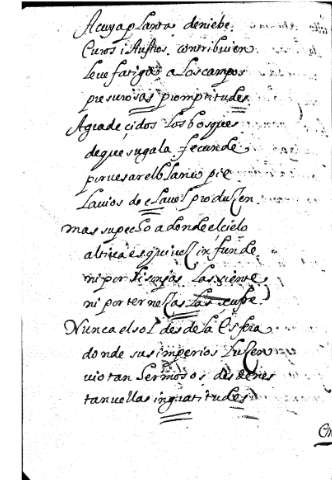 A cuya plantas de niebe
Euros i Austros contribuien
leve fatiga a los campos
presurosas promptitudes
Agradecidos los bosques
de que su gala fecunde
por vesar el blanco pie
lavios de clavel producen
mas su pecho a donde el cielo
altiva esquivez infunde
ni por finesas las siente
ni por ternesas las sufre
Nunca el sol desde la Esfera
donde sus imperios lucen
vio tan hermosos desdenes
tan vellas ingratitudes